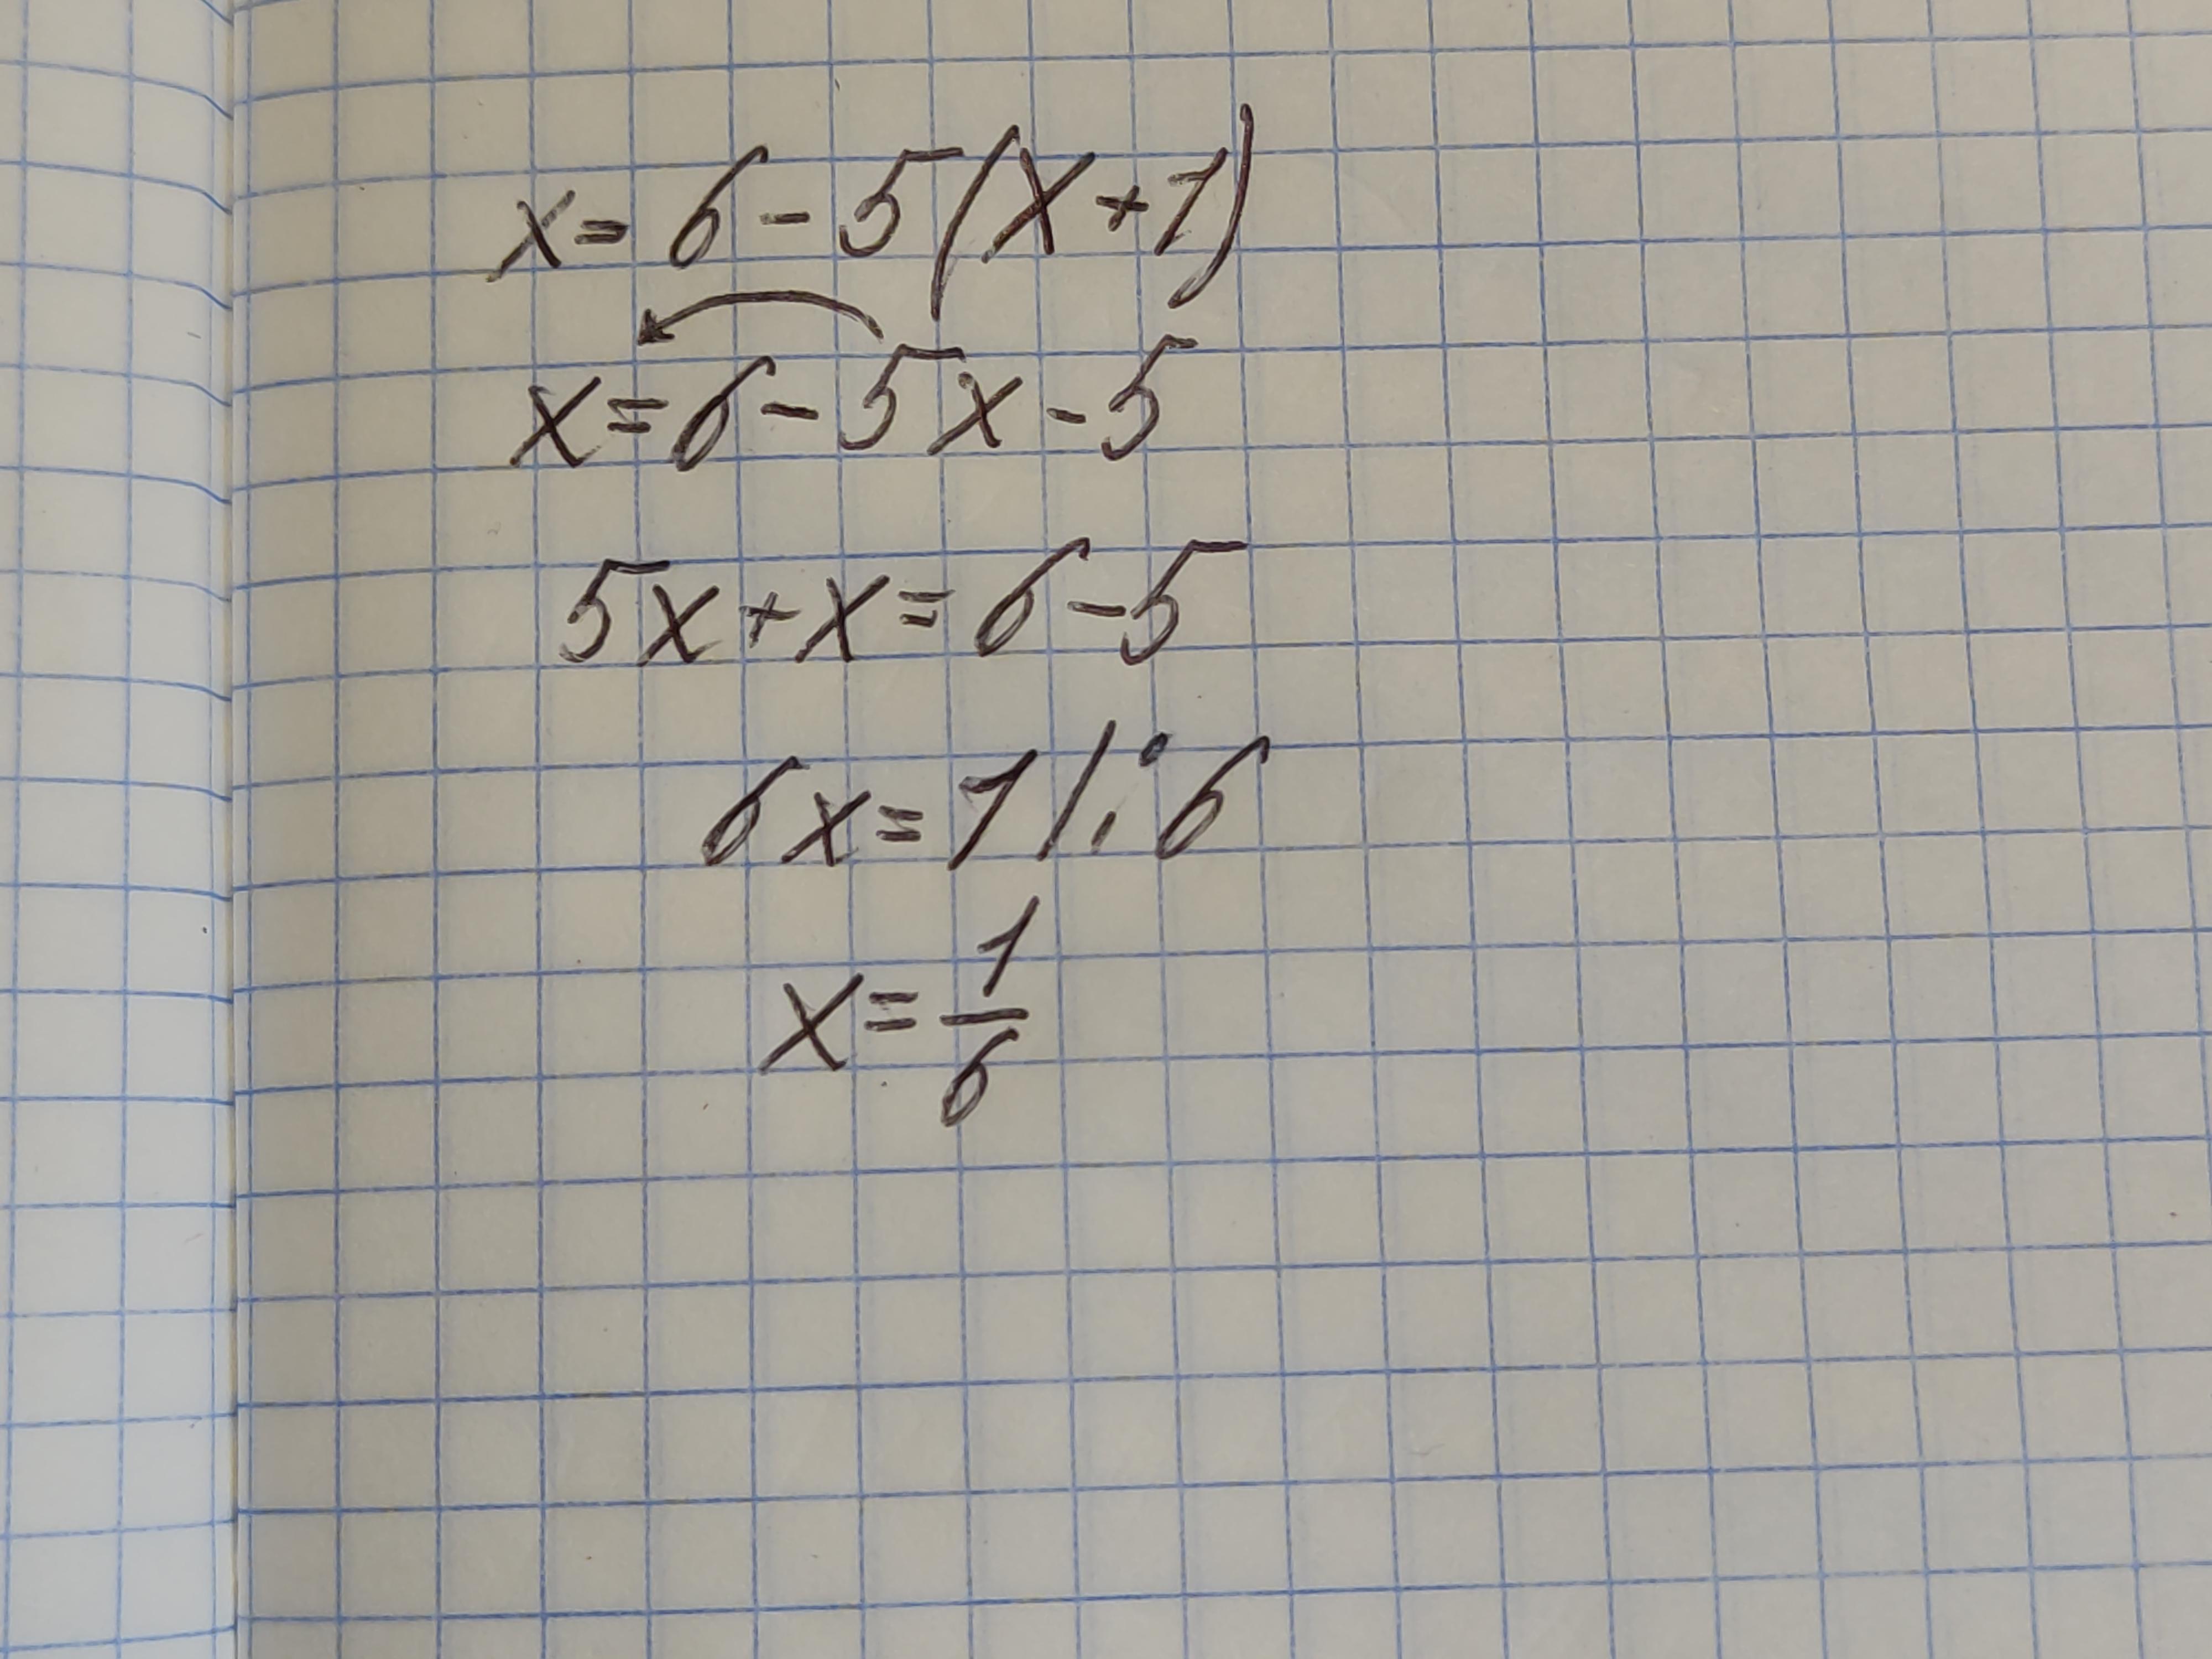 x = 6 - 5(x + 1)
x = 6 - 5x - 5
5x + x = 6 - 5
6x = 1 | : 6
x = 1/6